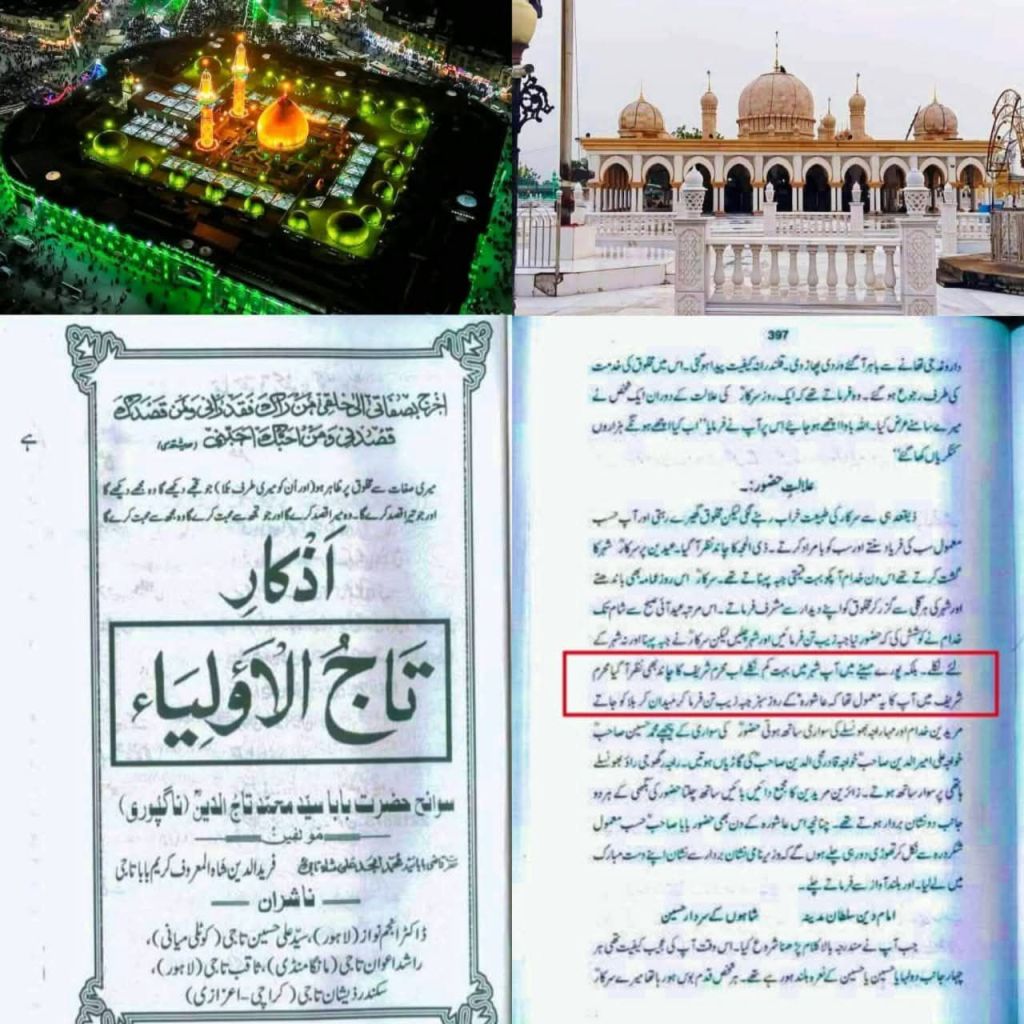 اخرج بصفاتى الى خلقى فمن رآك فقد رانى ومن قصدك
قصدنى ومن احبك احبنى
ہے
میری صفات سے مخلوق پر ظاہر ہو (اور اُن کو میری طرف بُلا) جو تجھے دیکھے گا وہ مجھے دیکھے گا
اور جو تیرا قصد کرے گا۔ وہ میرا قصد کرے گا اور جو تجھ سے محبت کرے گا وہ مجھ سے محبت کرے گا
اَذکارِ
تَاجُ الْاَوْلِیَاء
سوانح حضرت بابا سید محمد تاج الدینؒ (ناگپوری)
مؤلفین
فرید الدین شاہ المعروف کریم بابا تاجی
ناشران
ڈاکٹر انجم نواز (لاہور)، سید علی حسین تاجی (کوٹلی میانی)،
راشد اعوان تاجی (مانگا منڈی)، ثاقب تاجی (لاہور)،
سکندر ذیشان تاجی (کراچی - اعزازی)
397
داروغہ جی تھانے سے باہر آ گئے وردی پھاڑ دی۔ قلندرانہ کیفیت پیدا ہو گئی۔ اس میں مخلوق کی خدمت
کی طرف رجوع ہو گئے۔ وہ فرماتے تھے کہ ایک روز سرکارؒ کی علالت کے دوران ایک شخص نے
میرے سامنے عرض کیا۔ اللہ باوا اچھے ہو جایئے اس پر آپ نے فرمایا "اب کیا اچھے ہونگے ہزاروں
کنکریاں کھا گئے"
علالتِ حضور:۔
ذیقعد ہی سے سرکار کی طبیعت خراب رہنے لگی لیکن مخلوق گھیرے رہتی اور آپ حسب
معمول سب کی فریاد سنتے اور سب کو بامراد کرتے۔ ذی الحجہ کا چاند نظر آ گیا۔ عیدین پر سرکارؒ شہر کا
گشت کرتے تھے اس دن خدام آپکو بہت قیمتی جبہ پہناتے تھے۔ سرکارؒ اس روز عمامہ بھی باندھتے
اور شہر کی ہر گلی سے گزر کر مخلوق کو اپنے دیدار سے مشرف فرماتے۔ اس مرتبہ عید آئی صبح سے شام تک
خدام نے کوشش کی کہ حضور نیا جبہ زیب تن فرمائیں اور شہر چلیں لیکن سرکارؒ نے جبہ پہنا اور نہ شہر کے
لئے نکلے۔ بلکہ پورے مہینے میں آپ شہر میں بہت کم نکلے اب محرم شریف کا چاند بھی نظر آ گیا محرم
شریف میں آپ کا یہ معمول تھا کہ عاشورہ کے روز سبز جبہ زیب تن فرما کر میدان کربلا کو جاتے
مریدین خدام اور مہاراجہ بھونسلے کی سواری ساتھ ہوتی حضورؒ کی سواری کے پیچھے محمد حسین صاحبؒ
خواجہ علی امیر الدین صاحبؒ خواجہ قادر محی الدین صاحبؒ کی گاڑیاں ہوتیں۔ راجہ رگھوجی راؤ بھونسلے
ہاتھی پر سوار ساتھ ہوتے۔ زائرین مریدین کا مجمع دائیں بائیں ساتھ چلتا حضور کی بگھی کے ہر دو
جانب دو نشان بردار ہوتے تھے۔ چنانچہ اس عاشورہ کے دن بھی حضور بابا صاحبؒ حسب معمول
شکردرہ سے نکل کر تھوڑی دور ہی چلے ہوں گے کہ وزیر نامی نشان بردار سے نشان اپنے دست مبارک
میں لے لیا۔ اور بلند آواز سے فرماتے چلے۔
امام دین سلطان مدینہ شاہوں کے سردار حسین
جب آپ نے مندرجہ بالا کلام پڑھنا شروع کیا۔ اس وقت آپ کی عجیب کیفیت تھی ہر
چہار جانب دولہا یا حسین یا حسین کے نعرہ بلند ہو رہے تھے۔ ہر شخص قدم بوس ہو رہا تھا میرے سرکارؒ